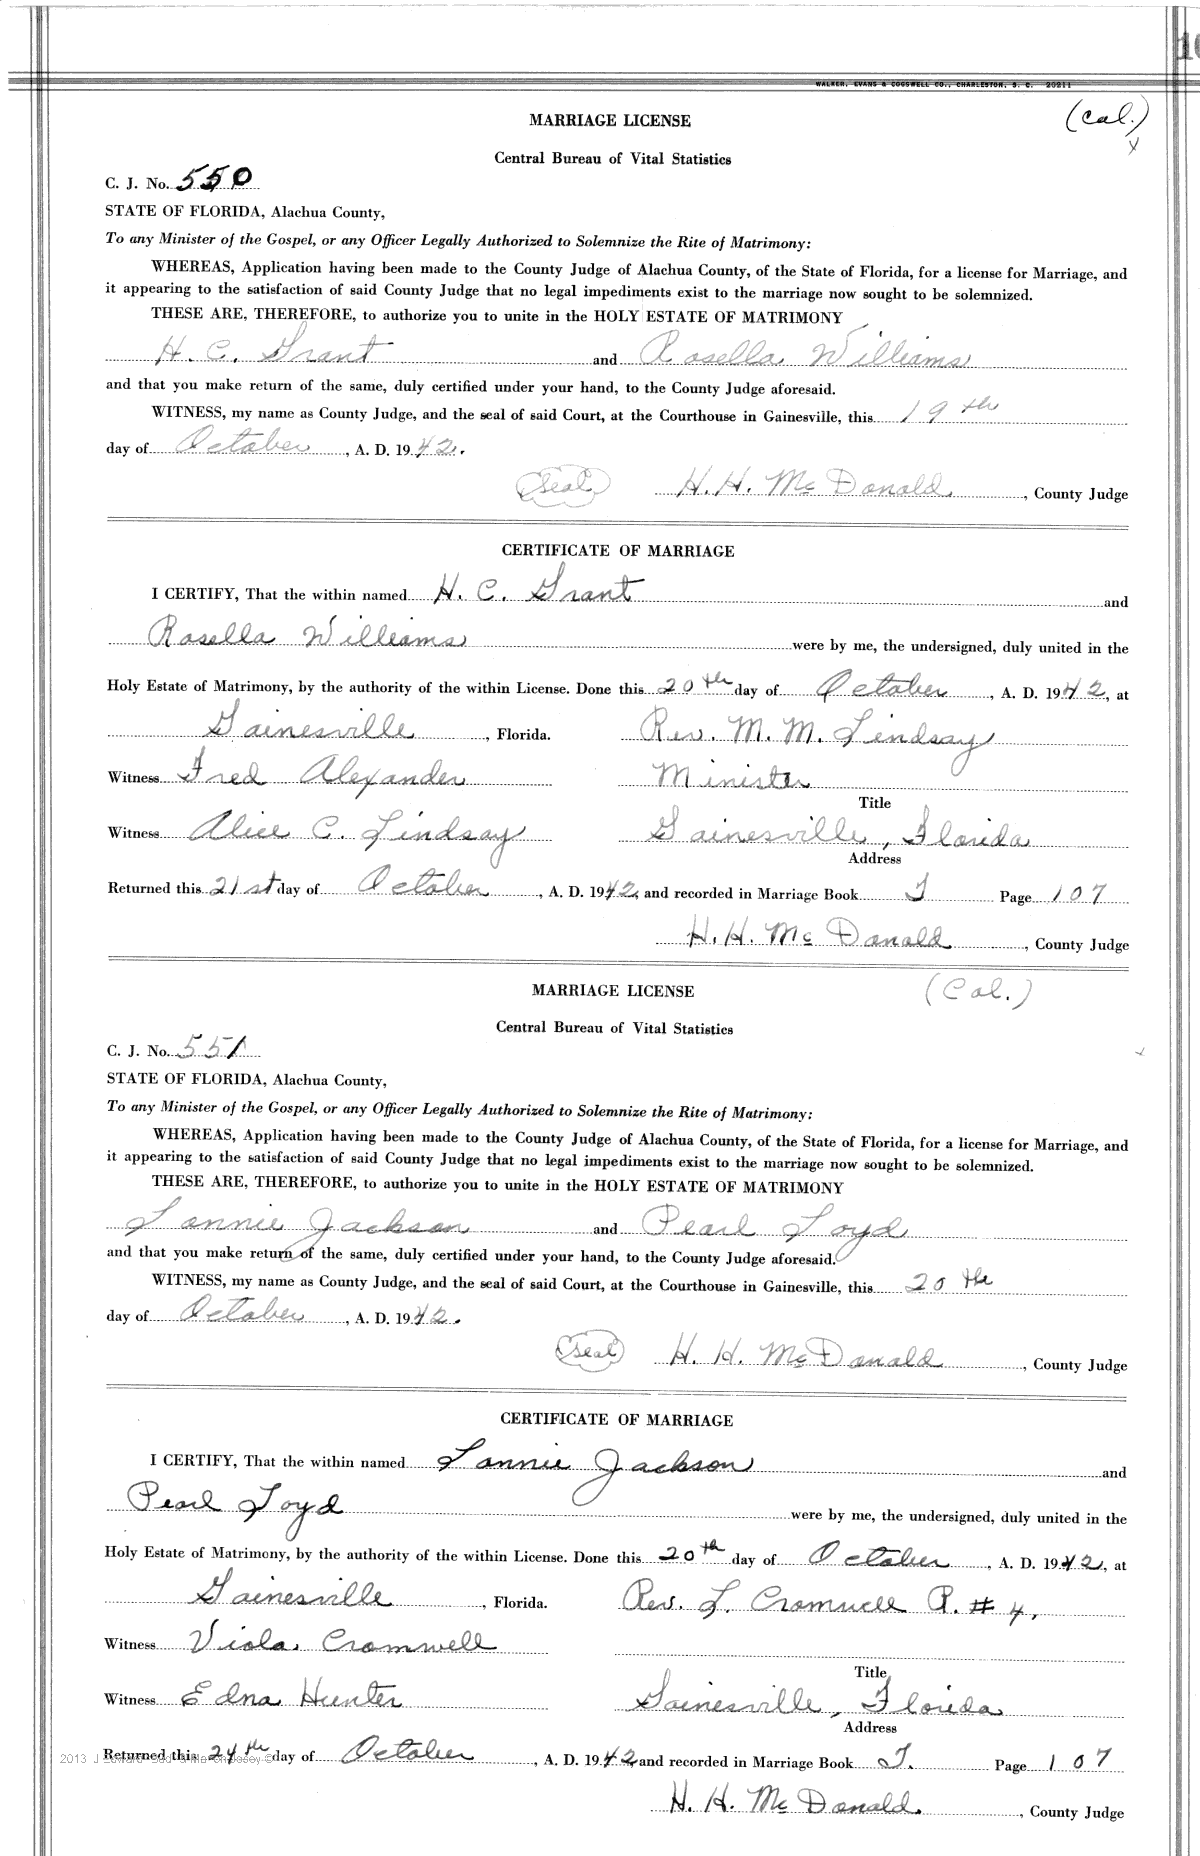 WALKER, EVANS & COGSWELL CO., CHARLESTON, S. C. 20211
MARRIAGE LICENSE
(Col.)
Central Bureau of Vital Statistics
C. J. No. 550
STATE OF FLORIDA, Alachua County,
To any Minister of the Gospel, or any Officer Legally Authorized to Solemnize the Rite of Matrimony:
WHEREAS, Application having been made to the County Judge of Alachua County, of the State of Florida, for a license for Marriage, and
it appearing to the satisfaction of said County Judge that no legal impediments exist to the marriage now sought to be solemnized.
THESE ARE, THEREFORE, to authorize you to unite in the HOLY ESTATE OF MATRIMONY
H. C. Grant and Rosella Williams
and that you make return of the same, duly certified under your hand, to the County Judge aforesaid.
WITNESS, my name as County Judge, and the seal of said Court, at the Courthouse in Gainesville, this 19th
day of October, A. D. 1942.
(Seal) H. H. McDonald, County Judge
CERTIFICATE OF MARRIAGE
I CERTIFY, That the within named H. C. Grant and
Rosella Williams were by me, the undersigned, duly united in the
Holy Estate of Matrimony, by the authority of the within License. Done this 20th day of October, A. D. 1942, at
Gainesville, Florida. Rev. M. M. Lindsay
Witness Fred Alexander Minister
Title
Witness Alice C. Lindsay Gainesville, Florida
Address
Returned this 21st day of October, A. D. 1942, and recorded in Marriage Book J Page 107
H. H. McDonald, County Judge
MARRIAGE LICENSE (Col.)
Central Bureau of Vital Statistics
C. J. No. 551
STATE OF FLORIDA, Alachua County,
To any Minister of the Gospel, or any Officer Legally Authorized to Solemnize the Rite of Matrimony:
WHEREAS, Application having been made to the County Judge of Alachua County, of the State of Florida, for a license for Marriage, and
it appearing to the satisfaction of said County Judge that no legal impediments exist to the marriage now sought to be solemnized.
THESE ARE, THEREFORE, to authorize you to unite in the HOLY ESTATE OF MATRIMONY
Lonnie Jackson and Pearl Loyd
and that you make return of the same, duly certified under your hand, to the County Judge aforesaid.
WITNESS, my name as County Judge, and the seal of said Court, at the Courthouse in Gainesville, this 20th
day of October, A. D. 1942.
(Seal) H. H. McDonald, County Judge
CERTIFICATE OF MARRIAGE
I CERTIFY, That the within named Lonnie Jackson and
Pearl Loyd were by me, the undersigned, duly united in the
Holy Estate of Matrimony, by the authority of the within License. Done this 20th day of October, A. D. 1942, at
Gainesville, Florida. Rev. L. Cromwell R. # 4,
Witness Viola Cromwell
Title
Witness Edna Hunter Gainesville, Florida
Address
Returned this 24th day of October, A. D. 1942, and recorded in Marriage Book J. Page 107
H. H. McDonald, County Judge